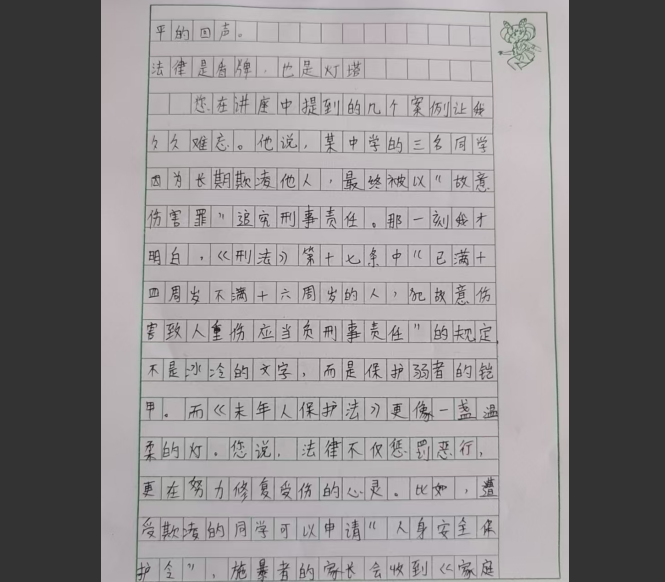 平的回声。
法律是盾牌，也是灯塔
您在讲座中提到的几个案例让我
久久难忘。他说，某中学的三名同学
因为长期欺凌他人，最终被以“故意
伤害罪”追究刑事责任。那一刻我才
明白，《刑法》第十七条中“已满十
四周岁不满十六周岁的人，犯故意伤
害致人重伤应当负刑事责任”的规定，
不是冰冷的文字，而是保护弱者的铠
甲。而《未年人保护法》更像一盏温
柔的灯。您说，法律不仅惩罚恶行，
更在努力修复受伤的心灵。比如，遭
受欺凌的同学可以申请“人身安全保
护令”，施暴者的家长会收到《家庭